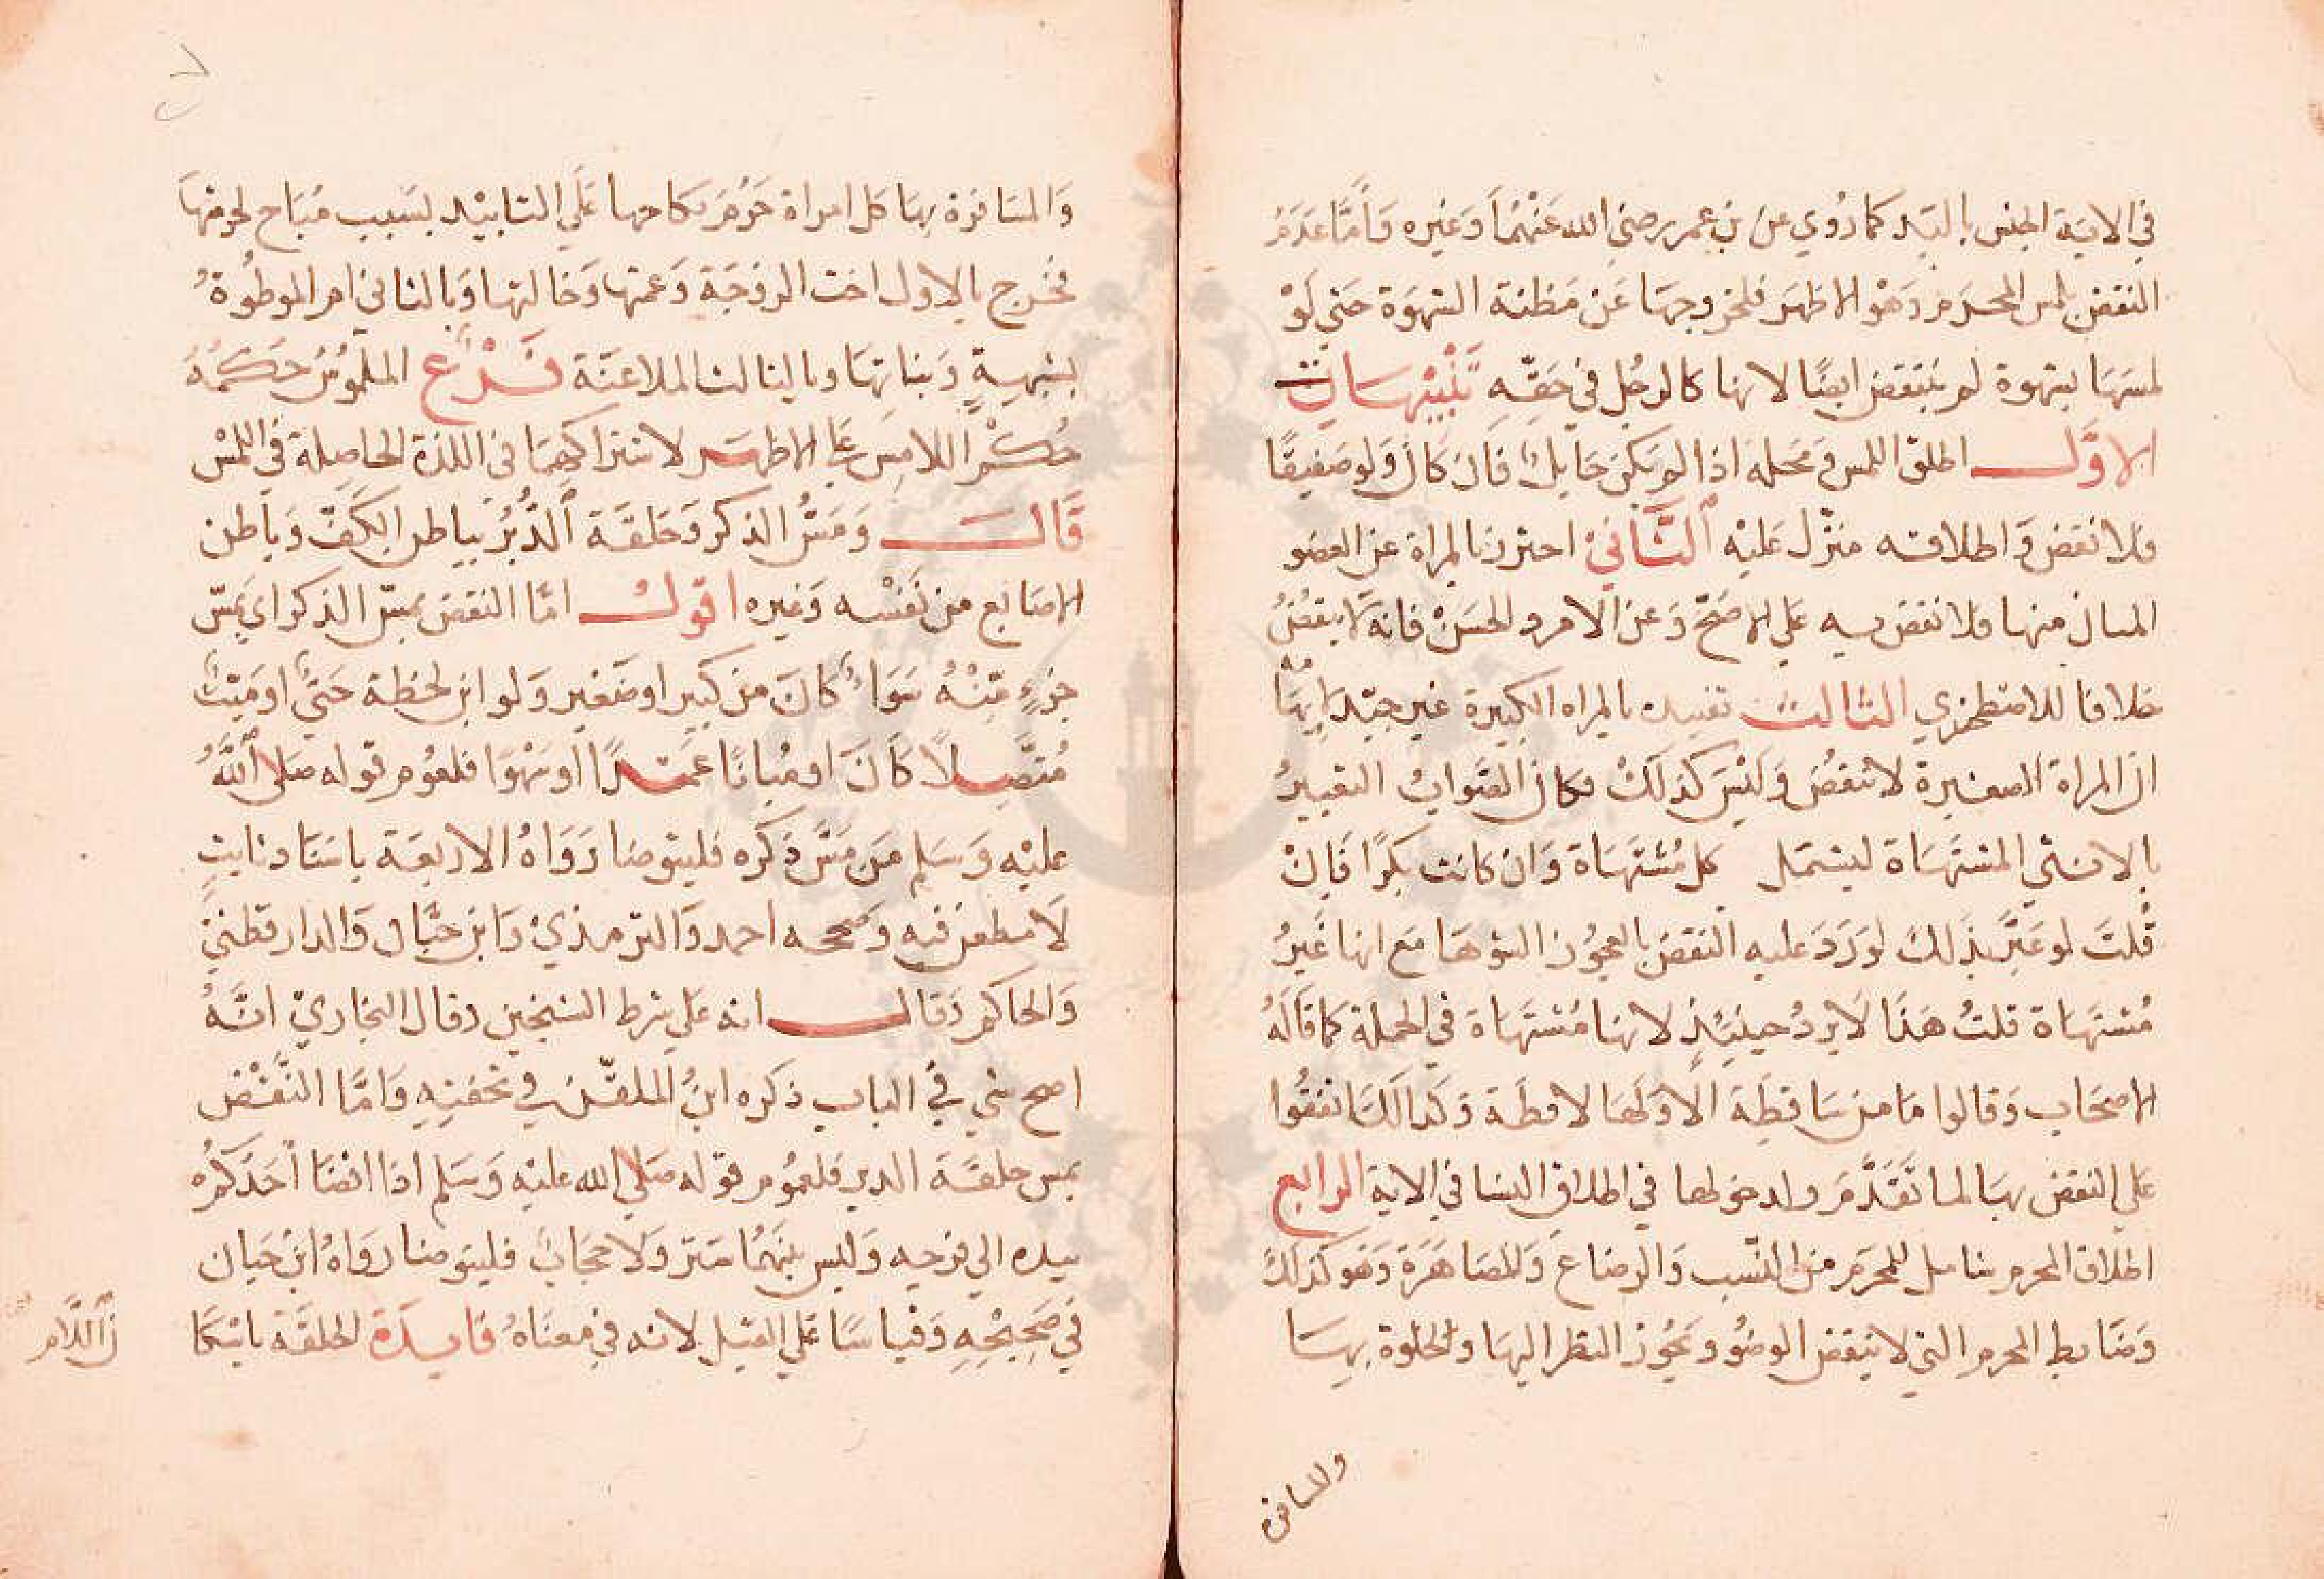 في الاية الجس باليد كما رُوي عن بن عمر رضي الله عَنْهُمَا وَغيره وَأمَّا عَدَمُ
النقض بلمس المحرم وَهُو الاظهَر فلخروجهَا عَن مَظنة الشهوَة حَتي لَوْ
لمسَهَا بشهوة لم ينتقض ايضًا لانها كالرجُل في حَقّه تَنْبيْهَات
الاوَّل اطلق اللمس وَمَحَله اذا لم يَكن حَايلٌ فَان كَانَ وَلو صَفيقًا
فلا نقض وَاطلاقه منزّل عَليْه الثَّانيْ احترز بالمراة عن العضو
المبان منها فلا نقض به عَلي الاصَحّ وَعن الامرد الحسَنْ فانه لا ينقُضُ
خلافا للاصطخري الثالث تقييده بالمراه الكبيرة غير جيّد لإيهَامه
ان المراة الصغيرة لا تنقُضُ وَليْسَ كذلَكْ وكان الصَّوابُ التعبيرُ
بالانثي المشتَهَاة ليشمل كل مُشْتَهَاة وَان كانت بكرًا فَإنْ
قُلتَ لو عَبَّر بذَلكَ لوَرَدَ عليه النقضَ بالعجُوز الشوهَا مَع انها غَيرُ
مُشتهَاة قلتُ هَذَا لَا يردُ حينئِذٍ لانهَا مُشتَهَاة في الجملة كَما قَالَهُ
الاصحَاب وَقالوا مَا من سَاقطَة الا وَلَهَا لاقطَة وَكذا لكَ اتفقُوا
عَلي النقض بهَا لما تَقَدَّمَ ولدخولها في اطلاق النسَا في الاية الرابع
اطلَاق المحرم شامل للمحرَم من النّسب وَالرضاع وَالمصَاهَرَة وَهَو كَذلكَ
وَضَابط المحرم التي لا ينقض الوضُو وَيجُوز النظر اليهَا والخلوة بهَا
والمسافرة
وَالمسَافرَة بهَا كل امراة حَرُمَ نكاحها عَلَي التابيْد بسَبب مُبَاح لحرمتهَا
فخرج بالاول اخت الزوجَة وَعمتها وَخالتها وَبالثاني ام الموطُوةُ
بشبهةٍ وَبناتهَا وبالثالث الملاعَنَة فَرْعٌ الملمُوسُ حَكمهُ
حُكمُ اللامِسَ عَلي الاظهَر لاشتراكهمَا في اللذة الحَاصِلة في اللمْس
قَالَ وَمَسُّ الذكر وَحَلقَة الدُّبُر ببَاطن الكَفّ وَبَاطن
الاصَابع من نَفْسْه وَغيره اقولُ امَّا النقضَ بمسّ الذكر اي بمَسّ
جزءٍ مّنْهُ سَوَاءٌ كانَ من كَبير او صَغير وَلو ابن لحظة حَيٌ او مَيّتٌ
مُتصِلًا كَانَ او مُبانًا عَمدًا او سَهْوًا فلعُموم قوله صَلي اللَّهُ
عليْه وَسَلم مَن مَسَّ ذَكره فليتوضا رَوَاهُ الاربعَة باسنَاد ثابتٍ
لَا مَطعن فيه وَصححه احمد وَالترمذيْ وَابن حبَّان وَالدارقطنيْ
وَالحاكم وَقَال انه عَلي شرط الشيخين وَقال البخاريْ انَّهُ
اصح شي في الباب ذكره ابنُ الملقّن في تحفتِهِ وَامَّا النَّقْض
بمس حلقَة الدبر فلعمُوم قوله صَلي الله عليْه وَسَلم اذا افضَا اَحَدَكمُ
بيده الي فرجه وَليس بينهُمَا سَتر وَلَا حجَابٌ فليتوضا رَوَاهُ ابن حبان
في صَحِيْحِهِ وَقياسًا عَلي القبل لانه في معنَاهُ فايدَة الحلقَة باسْكَا
ن اللَّام